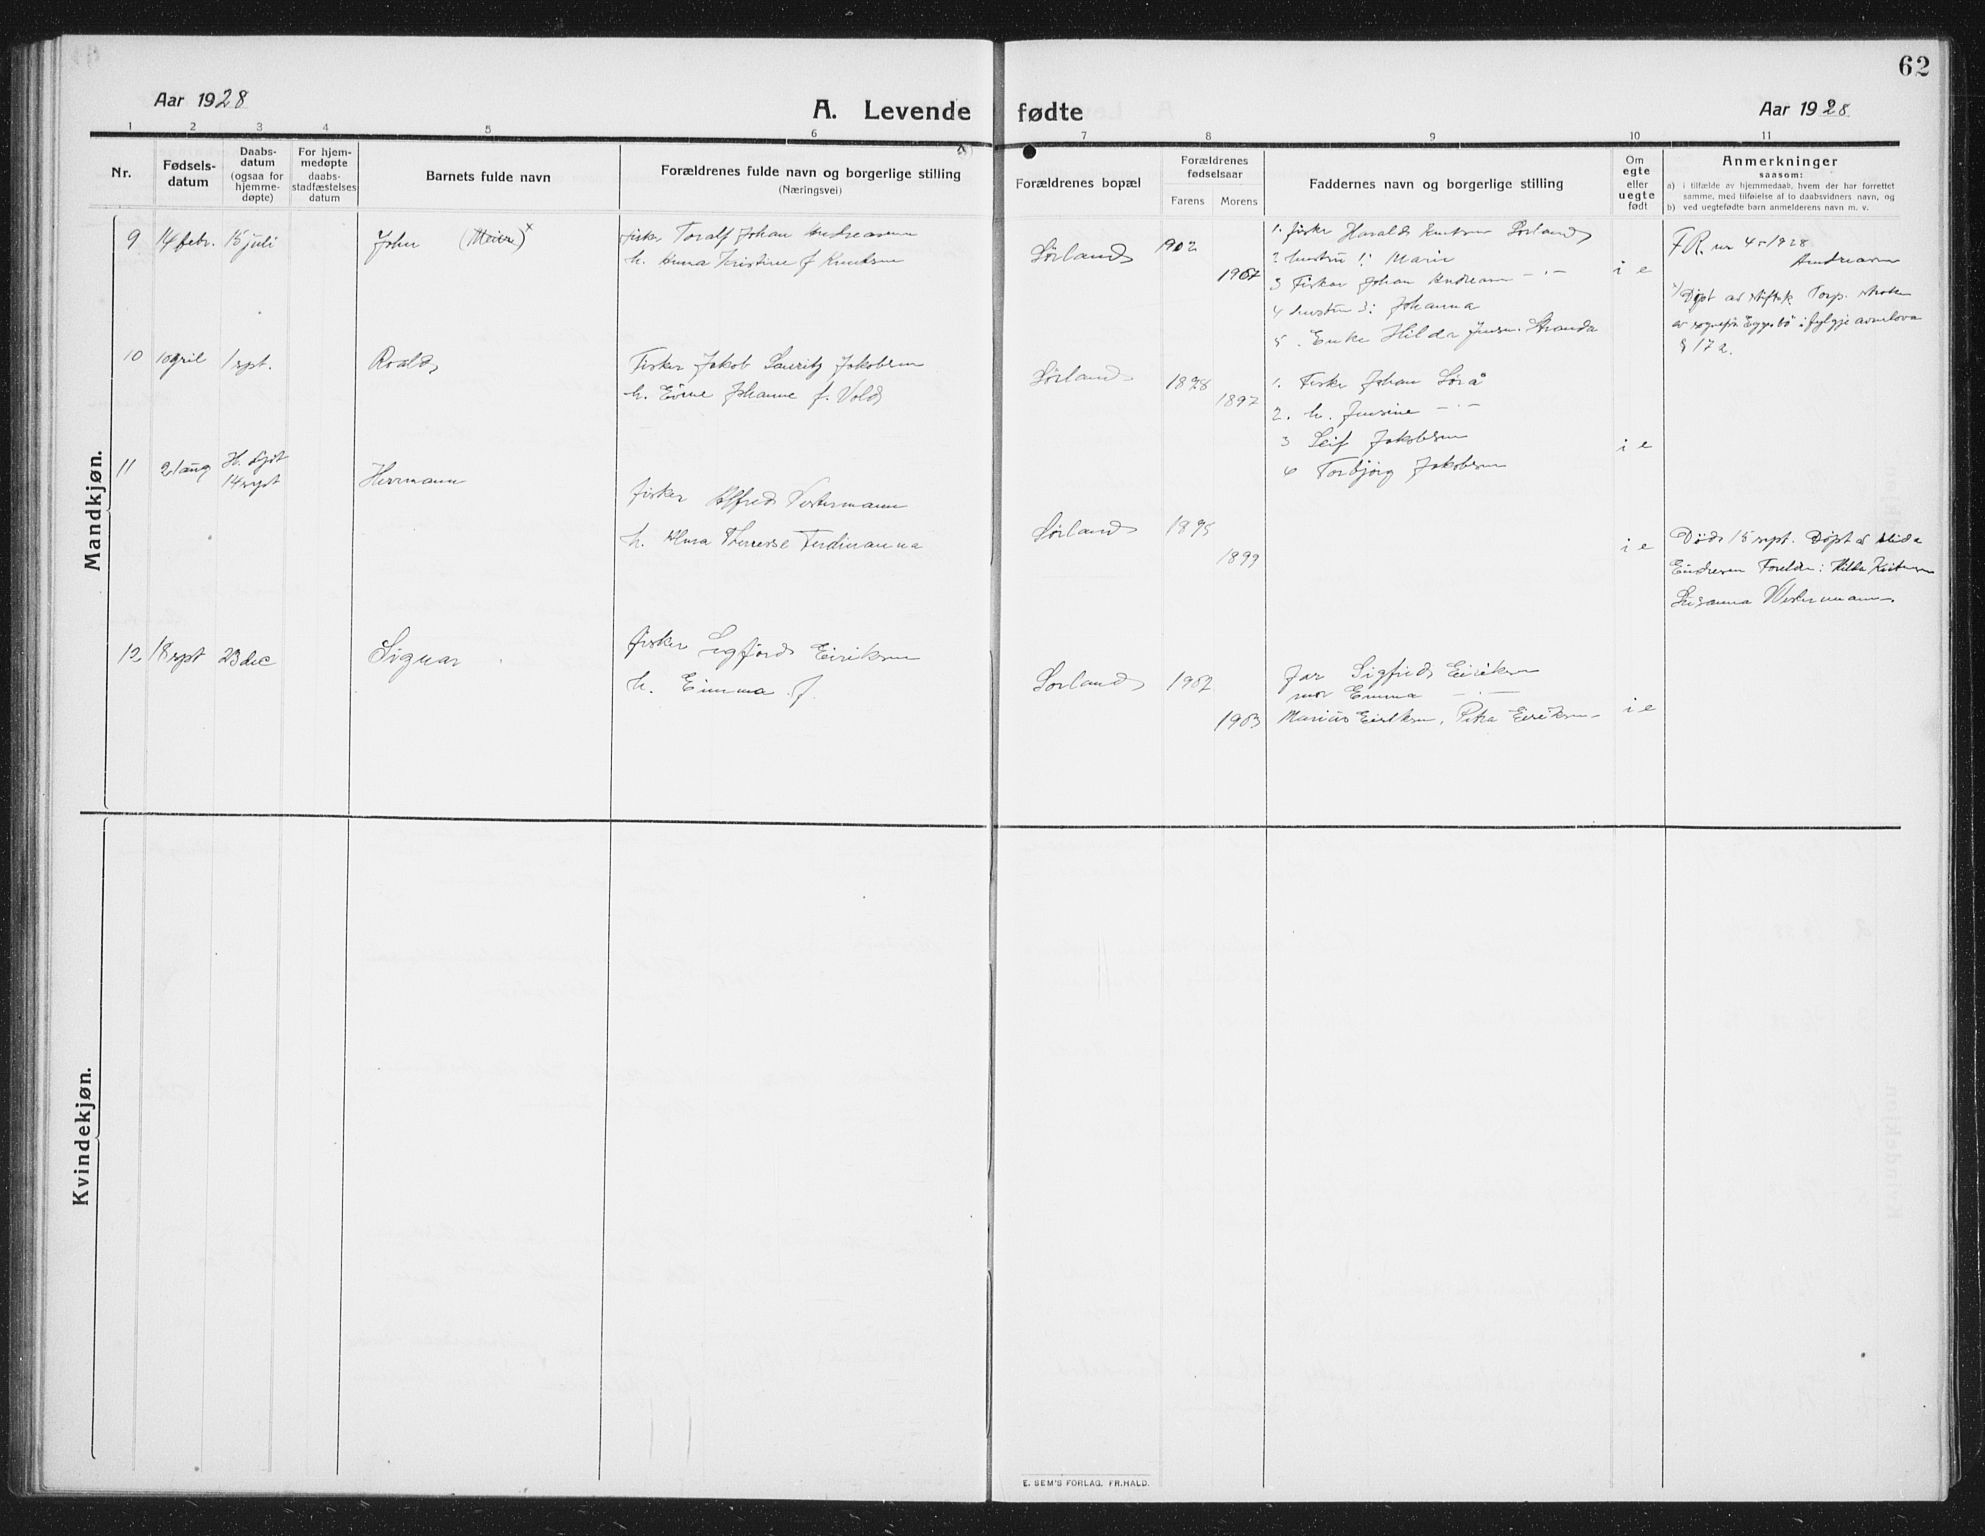 62
Aar 1928
A. Levende fødte
Aar 1928
1 2 3 4 5 6 7 8 9 10 11
Nr.
Fødsels-
datum
Daabs-
datum
(ogsaa for
hjemme-
døpte)
For hjem-
medøpte
daabs-
stadfæstelses
datum
Barnets fulde navn
Forældrenes fulde navn og borgerlige stilling
(Næringsvei)
Forældrenes bopæl
Forældrenes
fødselsaar
Farens Morens
Faddernes navn og borgerlige stilling
Om
egte
eller
uegte
født
Anmerkninger
saasom:
a) i tilfælde av hjemmedaab, hvem der har forrettet
samme, med tilføielse af to daabsvidners navn, og
b) ved uegtefødte barn anmelderens navn m. v.
Mandkjøn.
9 14 febr. 15 juli John (Meier) x
fisker Toralf Johan Andreassen
h. Anna Kristine f Knutsen
Sørland 1902
1907
1. fisker Harald Knutsen Sørland
2 hustru 1: Marie
3 Fisker Johan Andreassen - " -
4 hustru 3: Johanna
5. Enke Hilda Jensen Stranda
i e
F.R. nr 4 - 1928
Andreassen
x) Døpt av Torp.
av Eggebø i fylgje
§ 17 2.
10 10 april 1 sept. Roald
Fisker Jakob Lauritz Jakobsen
h. Johanne f. Vold
Sørland 1898
1897
1. Fisker Johan Sørå
2. h. Jensine - " -
3 Leif Jakobsen
4 Torbjørg Jakobsen
i e
11 21 aug H. døpt
14 sept
Herrmann
fisker Alfred Vestermann
h. Alma Therese Ferdinanna
Sørland 1895
1899
i e
Død 15 sept. Døpt av
Endresen Foreldre: Hilda
Susanna Westermann
12 18 sept 23 dec Signar
fisker Sigfred Eiriksen
h. Emma f.
Sørland 1902
1903
far Sigfrid Eiriksen
mor Emma - " -
Marius Eiriksen, Petra Eiriksen
i e
Kvindekjøn.
E. SEM'S FORLAG. FR.HALD.